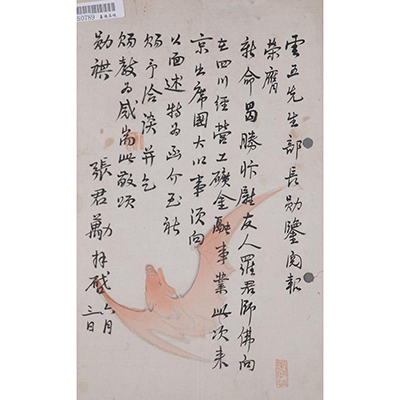 雲五先生部長勛鑒閱報
榮膺
新命曷勝忭慰友人羅君師佛向
在四川經營工礦金融事業此次来
京出席國大以事須向
以面述特為函介至祈
賜予洽談并乞
賜教為感耑此敬頌
勛祺
張君勱拜啓六月
三日
S0789